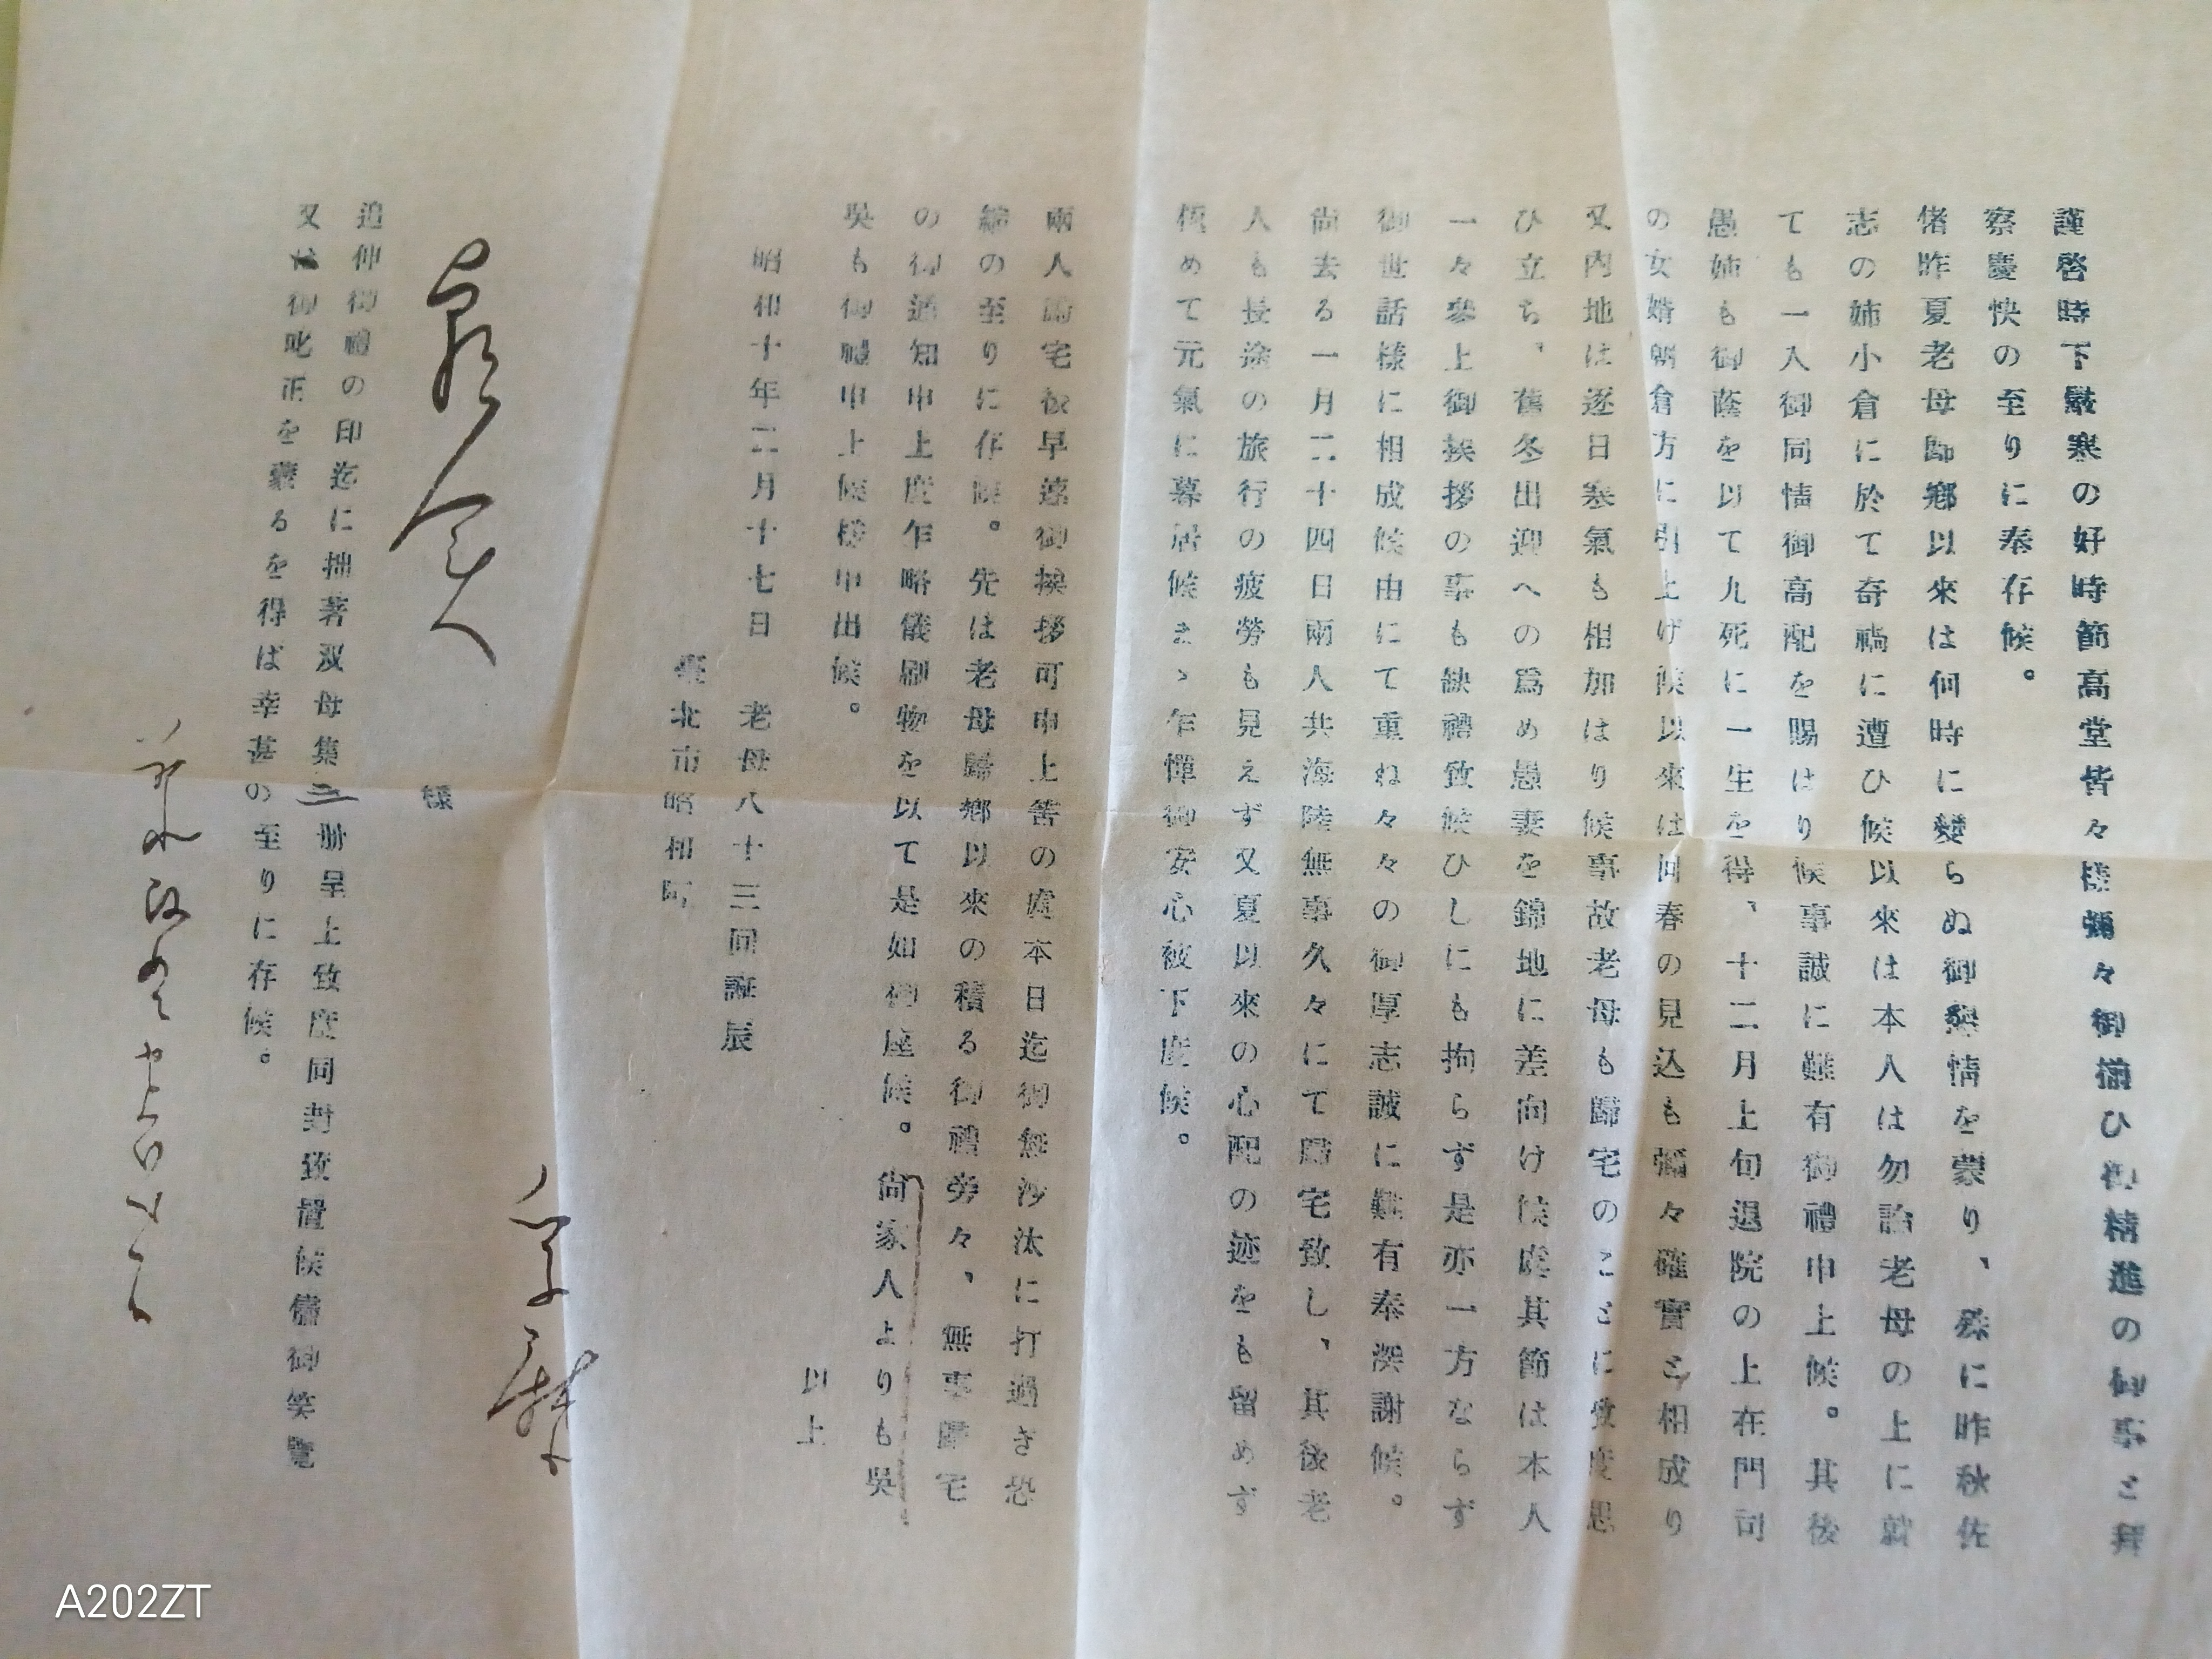 謹啓時下嚴寒の好時節高堂皆々樣彌々御揃ひ御精進の御事と拜
察慶快の至りに奉存候。
偖昨夏老母歸鄕以來は何時に變らぬ御懇情を蒙り、殊に昨秋佐
志の姉小倉に於て奇禍に遭ひ候以來は本人は勿論老母の上に就
ても一入御同情御高配を賜はり候事誠に難有御禮申上候。其後
愚姉も御蔭を以て九死に一生を得、十二月上旬退院の上在門司
の女婿朝倉方に引上げ候以來は回春の見込も彌々確實と相成り
又內地は逐日寒氣も相加はり候事故老母も歸宅のことに致度思
ひ立ち、舊冬出迎への爲め愚妻を錦地に差向け候處其節は本人
一々參上御挨拶の事も缺禮致候ひしにも拘らず是亦一方ならず
御世話樣に相成候由にて重ね々々の御厚志誠に難有奉深謝候。
尙去る一月二十四日兩人共海陸無事久々にて歸宅致し、其後老
人も長途の旅行の疲勞も見えず又夏以來の心配の迹をも留めず
極めて元氣に暮居候まゝ乍憚御安心被下度候。
兩人歸宅後早速御挨拶可申上筈の處本日迄御無沙汰に打過き恐
縮の至りに存候。先は老母歸鄕以來の積る御禮旁々、無事歸宅
の御通知申上度乍略儀刷物を以て是如御座候。尙家人よりも吳
吳も御禮申上候樣申出候。
以上
昭和十年二月十七日
老母八十三回誕辰
臺北市昭和町
樣
追伸御禮の印迄に拙著双母集三册呈上致度同封致置候儘御笑覽
又は御叱正を蒙るを得ば幸甚の至りに存候。
A202ZT